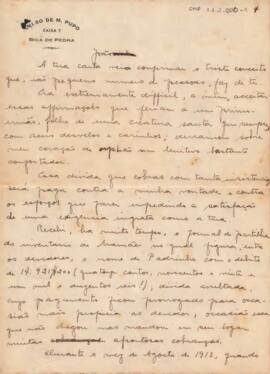 CELSO DE M. PUPO
CAIXA 7
BICA DE PEDRA
João
A tua carta veio confirmar o triste conceito
que, não pequeno numero de pessoas, faz de ti.
Era extremamente dificil, a mim acceitar
essas affirmações que feriam a um primo
irmão, filho de uma creatura santa que sempre,
com seus desvelos e carinhos, derramou sobre
meu coração de orphão um lenitivo bastante
confortador.
Essa divida que cobras com tanta insistencia
será paga contra a minha vontade e contra
os esforços que farei impedindo a satisfação
de uma exigencia ingrata como a tua.
Recebi, ha muito tempo, o formal de partilha
do inventario de Mamãe no qual figura, entre
os devedores, o nome de Padrinho com o debito
de 14.921$200 (quatorze contos, novecentos e vinte e
um mil e duzentos reis!), divida avultada,
cujo pagamento ficou prorogado para occa-
sião mais propicia ao devedor, occasião essa
que não chegou mas mandou em seu logar
muitas affrontosas cobranças.
Durante o mez de Agosto de 1918, quando